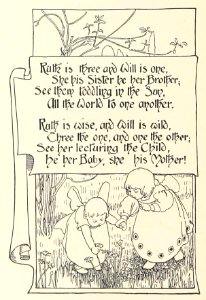 Ruth is three and Will is one,
She his Sister he her Brother;
See them toddling in the Sun,
All the World to one another.
Ruth is wise, and Will is wild,
Three the one, and one the other;
See her lecturing the Child,
He her Baby, she his Mother!